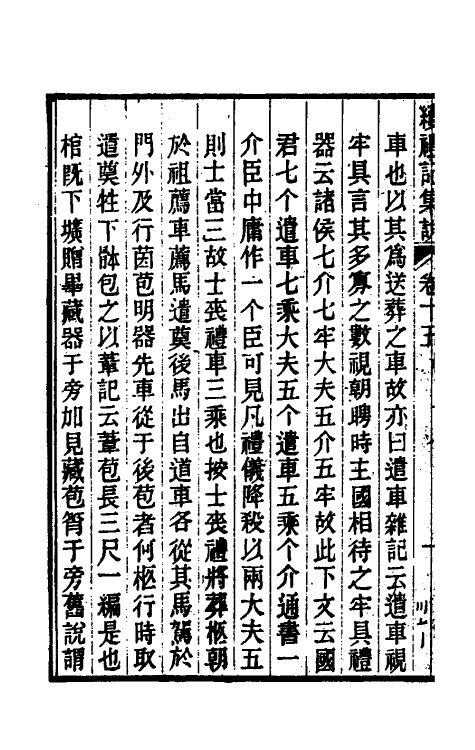 續禮記集說 卷十五
車也以其爲送葬之車故亦曰遣車雜記云遣車視
牢具言其多寡之數視朝聘時主國相待之牢具禮
器云諸侯七介七牢大夫五介五牢故此下文云國
君七个遣車七乘大夫五个遣車五乘个介通書一
介臣中庸作一个臣可見凡禮儀降殺以兩大夫五
則士當三故士喪禮車三乘也按士喪禮將葬柩朝
於祖薦車薦馬遣奠後馬出自道車各從其馬駕於
門外及行茵苞明器先車從于後苞者何柩行時取
遣奠牲下體包之以葦記云葦苞長三尺一編是也
棺旣下壙贈畢藏器于旁加見藏苞筲于旁舊說謂